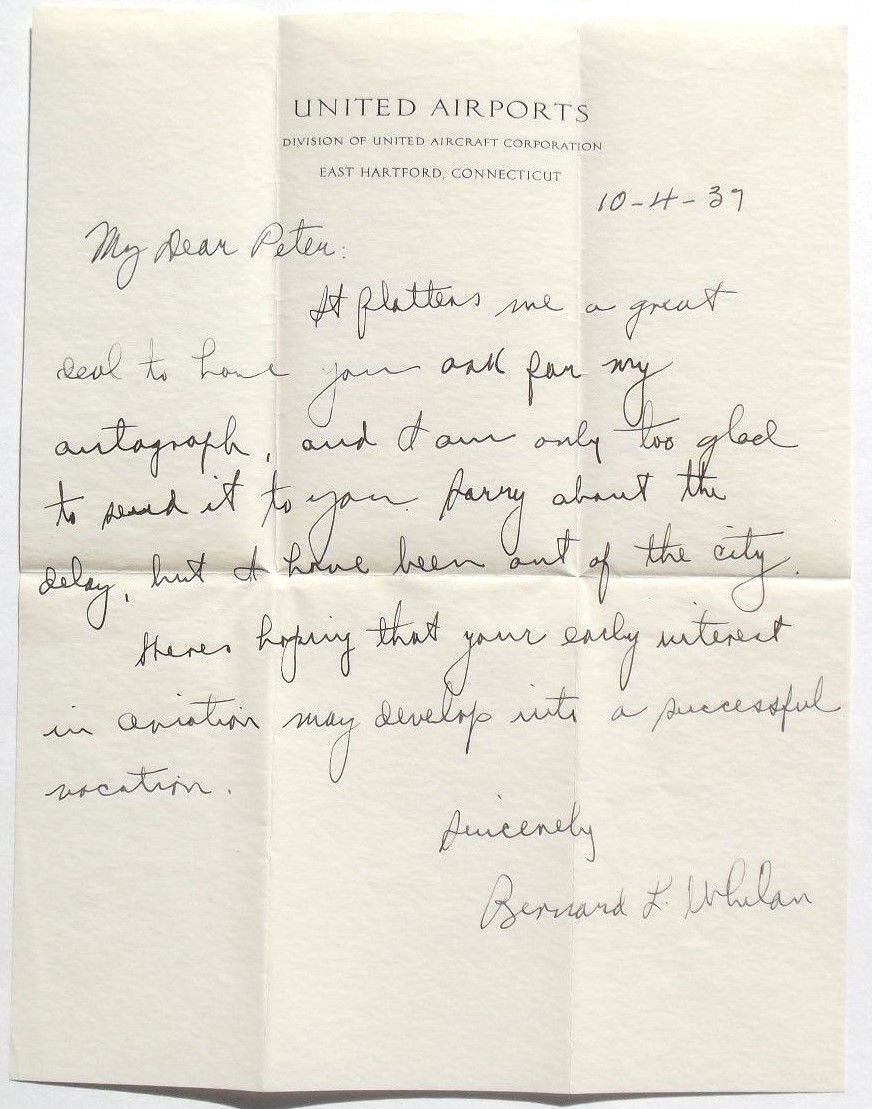 UNITED AIRPORTS
DIVISION OF UNITED AIRCRAFT CORPORATION
EAST HARTFORD, CONNECTICUT
10-4-39
My Dear Peter:
It flatters me a great
deal to have you ask for my
autograph, and I am only too glad
to send it to you. Sorry about the
delay, but I have been out of the city.
Heres hoping that your early interest
in aviation may develop into a successful
vocation.
Sincerely
Bernard L. Whelan